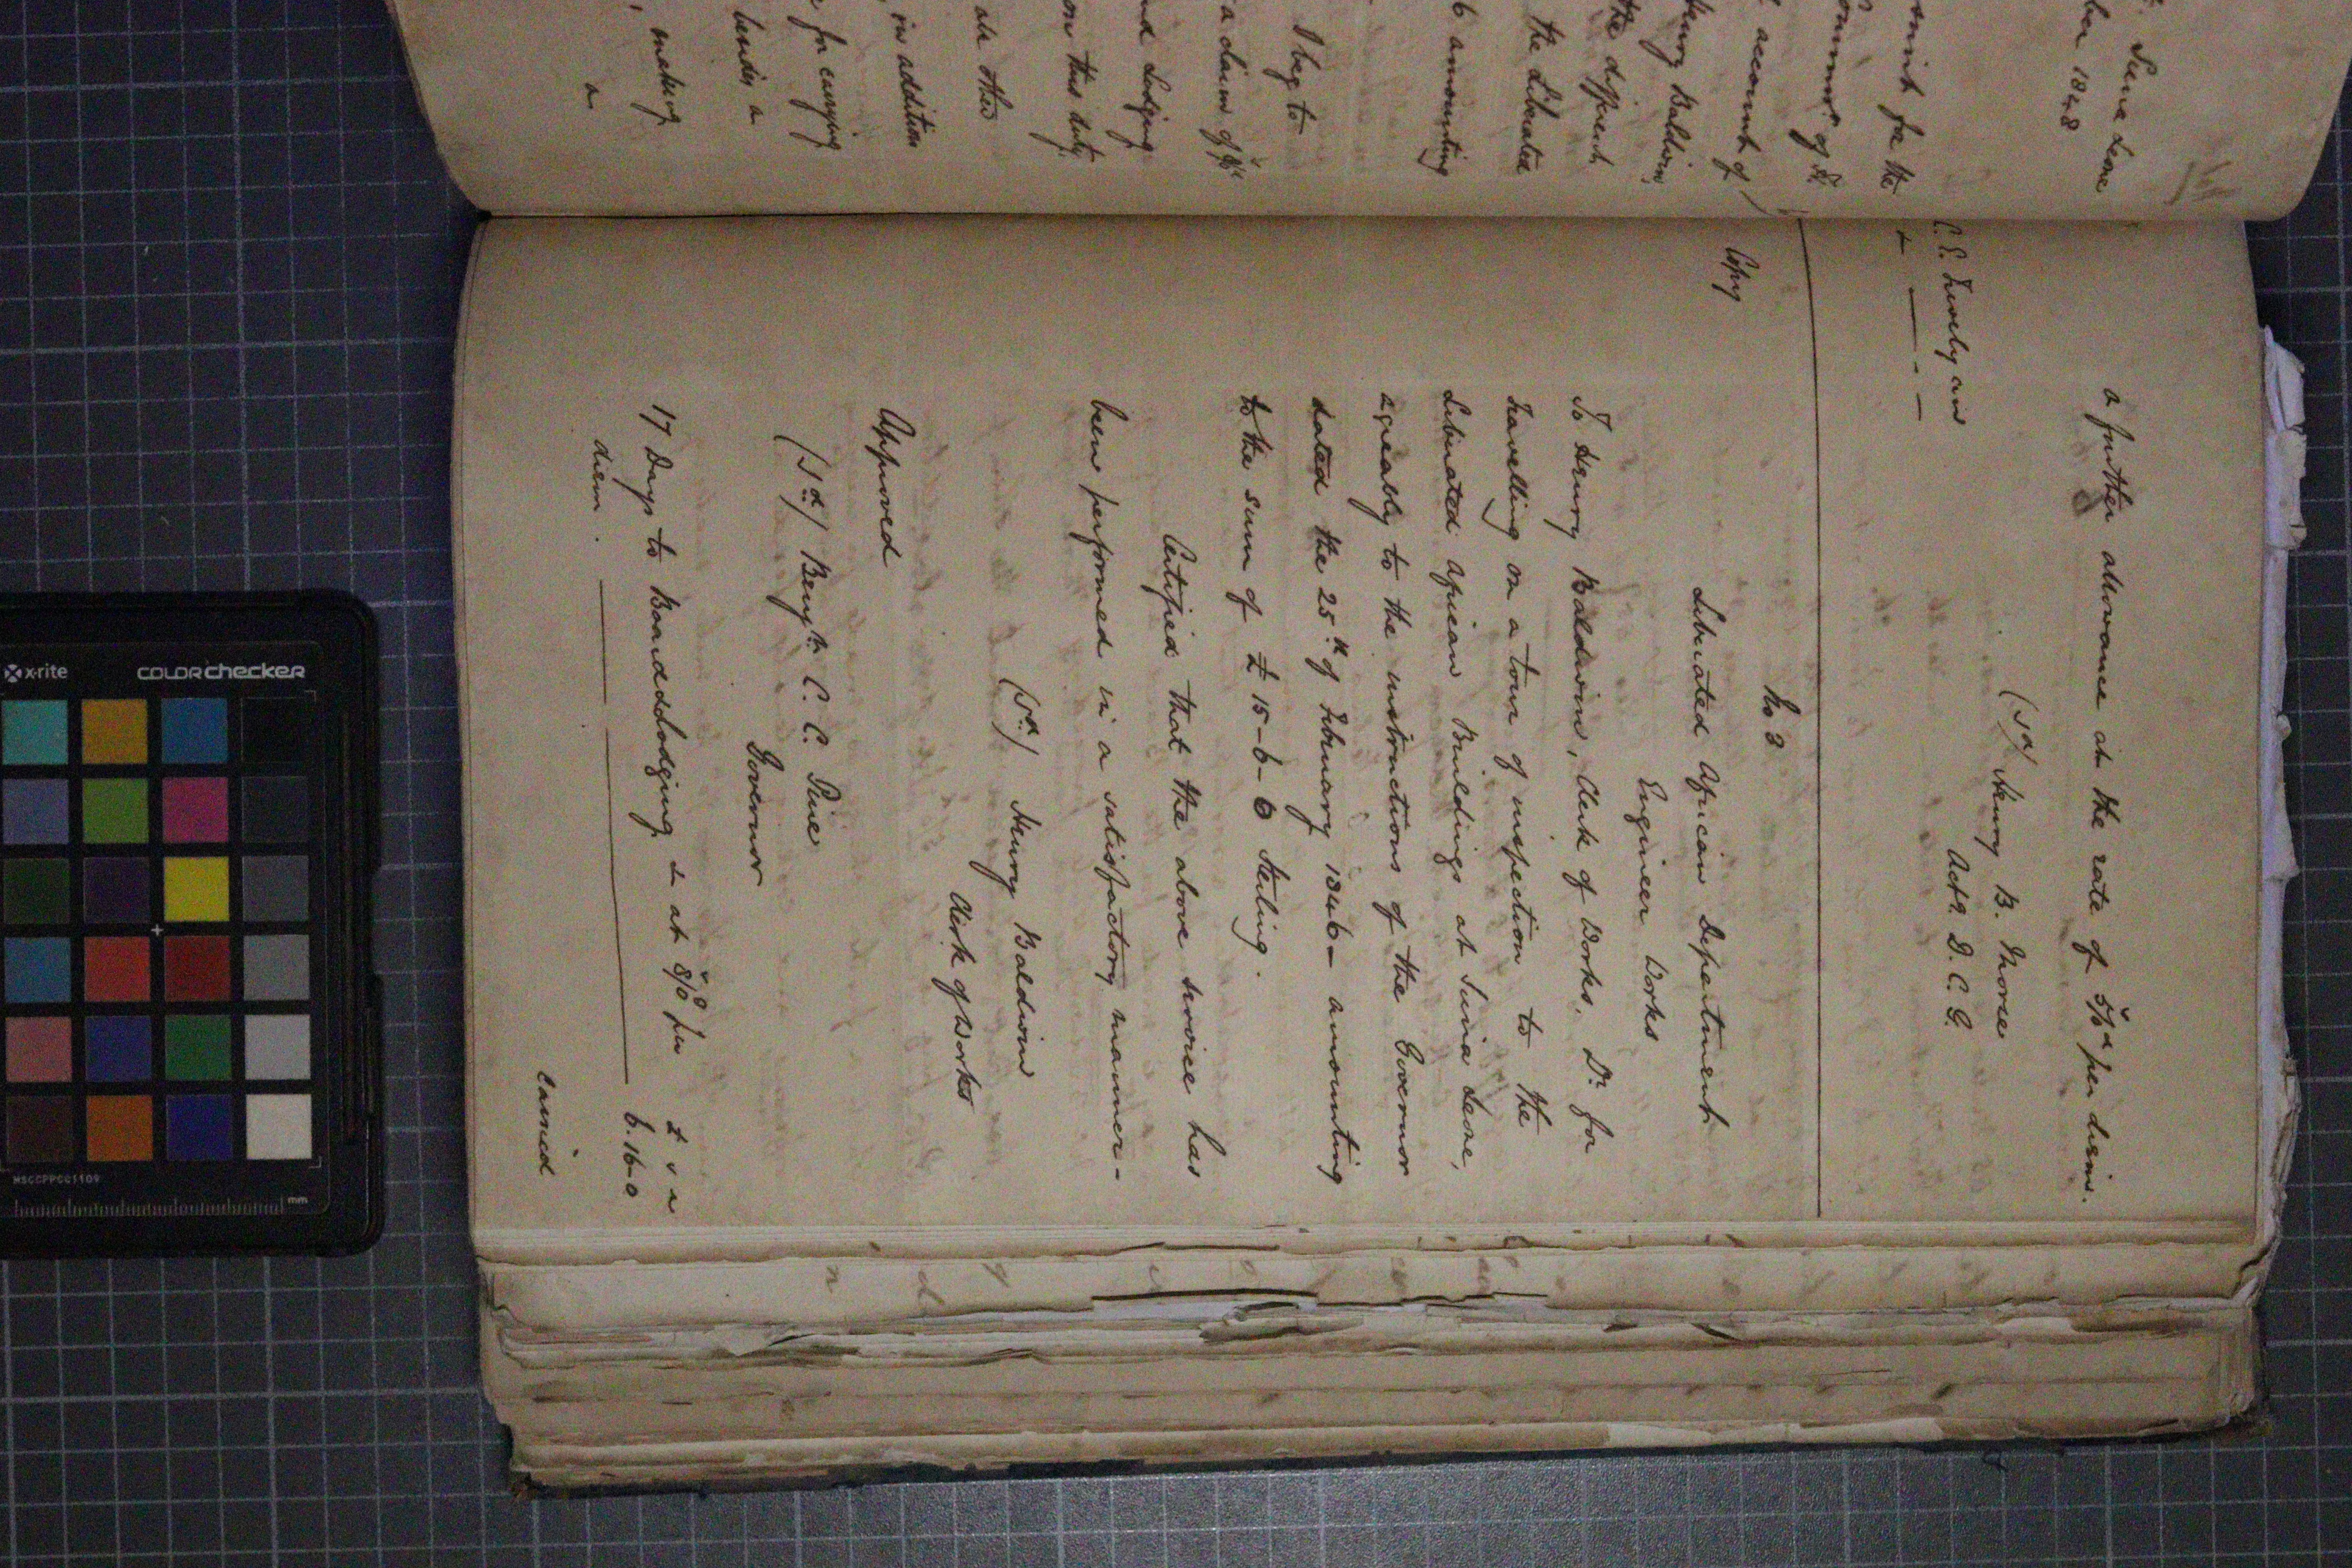 a further allowance at the rate of 5/0d per diem.
(Sd) Henry B. Morse
Actg. D. C. G.
C. E. Trevelyan
&
Copy
No 3
Liberated African Department
Engineer Works
To Henry Baldwin, Clerk of Works. Dr. for
Travelling on a tour of inspection to the
Liberated African Buildings at Sierra Leone,
agreably to the instructions of the Governor
dated the 25th of February 1846 - amounting
to the sum of £15-6-6 Sterling.
Certified that the above service has
been performed in a satisfactory manner -
(Sd) Henry Baldwin
Clerk of Works
Approved
(Sd) Benjn. C. C. Pine
Governor
17 Days to Board & Lodging &c at 8/0 per
diem.
£ s d
6.16.0
Carried
Sierra Leone
ber 1848
for the
of
account of
Henry Baldwin
the different
the Liberated
6 amounting
I beg to
a claim of
nd Lodging
on this duty
in addition
for carrying
besides a
, making
a
x-rite
colorchecker
MSCCPPCC1109
mm